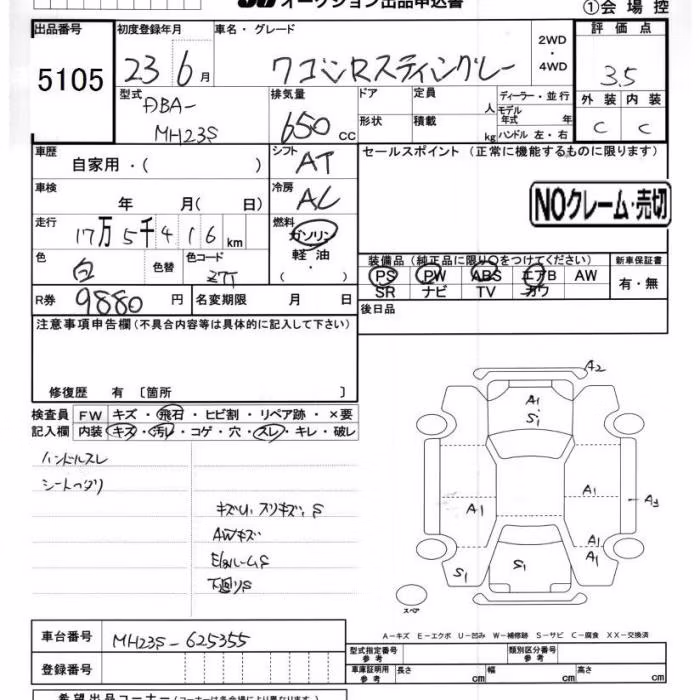 オークション出品申込書
①会場控
出品番号 初度登録年月 車名・グレード 評価点
5105 23 6月 ワゴンRスティングレー 2WD・4WD 3.5
型式 排気量 ドア 定員 人 ディーラー・並行 外装 内装
DBA- 650cc 形状 積載 kg モデル年式 年 C C
MH23S ハンドル 左・右
車歴 シフト セールスポイント (正常に機能するものに限ります)
自家用・( ) AT
車検 冷房
年 月( 日) AC NOクレーム・売切
走行 燃料
17万5千416km ガソリン
軽油
色 色替 色コード ( ・ ) 装備品(純正品に限り○をつけてください) 新車保証書
白 Z7T PS PW ABS エアB AW 有・無
SR ナビ TV カワ
R券 9880円 名変期限 月 日 後日品
注意事項申告欄(不具合内容等は具体的に記入して下さい)
修復歴 有 〔箇所 〕
検査員 FW キズ・飛石・ヒビ割・リペア跡・×要
記入欄 内装 キズ・汚レ・コゲ・穴・スレ・キレ・破レ
ハンドルスレ
シートヘタリ
キズU、スリキズ、S
AWキズ
Eルーム S
下廻り S
A2
A1
S1
A1
A1 A3
A1
A1
S1
S1
スペア
A-キズ E-エクボ U-凹み W-補修跡 S-サビ C-腐食 XX-交換済
車台番号 MH23S-625355
型式指定番号 参考 類別区分番号 参考
登録番号
車庫証明用 参考 長さ cm 幅 cm 高さ cm
希望出品コーナー(コーナーは各会場により異なります)